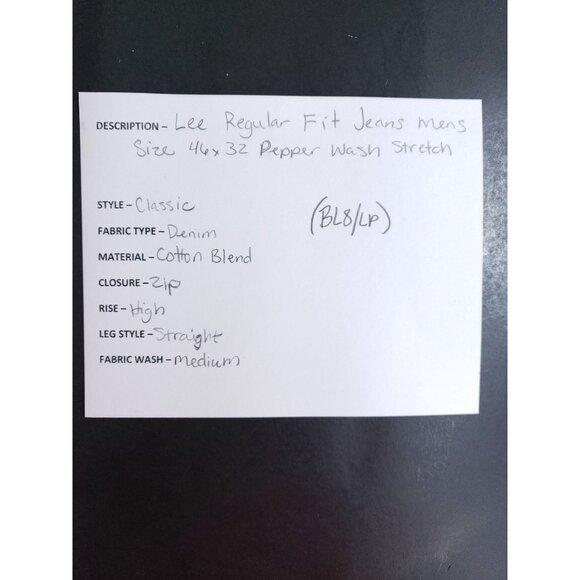 DESCRIPTION – Lee Regular Fit Jeans Mens
Size 46x32 Pepper Wash Stretch
STYLE – Classic
(BL8/LP)
FABRIC TYPE – Denim
MATERIAL – Cotton Blend
CLOSURE – Zip
RISE – High
LEG STYLE – Straight
FABRIC WASH – Medium